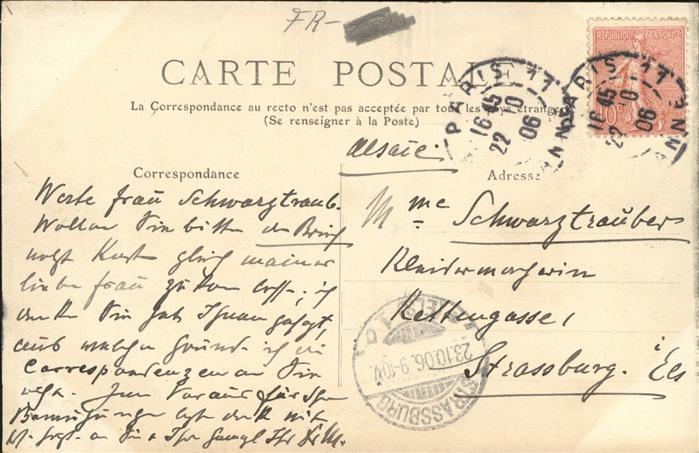 FR-
CARTE POSTALE
La Correspondance au recto n'est pas acceptée par tous les pays étrangers
(Se renseigner à la Poste)
REPUBLIQUE FRANÇAISE
10
PARIS 17
16 45
22 10
06
PARIS 17
16 45
22 10
06
Correspondance
Adresse
Alsace.
Werte Frau Schwarztraub.
Wollen Sie bitte den Brief
nebst Karte gleich meiner
lieben Frau zukommen lassen; ich
denke Sie hat Ihnen gesagt,
aus welchem Grunde ich die
Correspondenzen an Sie
Zum Voraus für Ihre
Bemühungen besten Dank mit
Mme Schwarztrauber
Kleidermacherin
Kettengasse 1
Strassburg. Els
STRASSBURG
23.10.06. 9-10V.